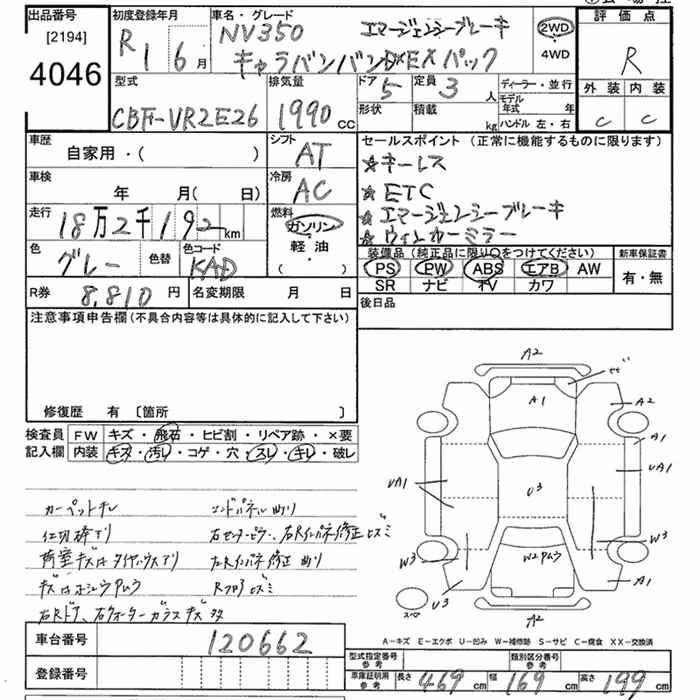 出品番号
[2194]
4046
初度登録年月
R 1 6 月
車名・グレード
NV350 エマージェンシーブレーキ
キャラバンバンDXEXパック
2WD
4WD
評価点
R
外装 内装
C C
型式
CBF-VR2E26
排気量
1990 cc
ドア 5
定員 3 人
形状
積載 kg
ディーラー・並行
モデル年式 年
ハンドル 左・右
車歴
自家用・( )
シフト
AT
セールスポイント (正常に機能するものに限ります)
☆キーレス
☆ETC
☆エマージェンシーブレーキ
☆ウィンカーミラー
車検
年 月( 日)
冷房
AC
走行
18万2千192 km
燃料
ガソリン・
軽油・
( )
色
グレー
色替
色コード
KAD
装備品(純正品に限り○をつけてください)
PS PW ABS エアB AW
SR ナビ TV カワ
新車保証書
有・無
R券
8,810 円
名変期限 月 日
後日品
注意事項申告欄(不具合内容等は具体的に記入して下さい)
修復歴 有 〔箇所 〕
検査員
記入欄
FW キズ・飛石・ヒビ割・リペア跡・×要
内装 キズ・汚レ・コゲ・穴・スレ・キレ・破レ
カーペットキレ エンドパネル曲り
仕切棒アリ
荷室キズ
右Rドア、右クォーターガラスキズ
A2
A1
A2
A1
UA1
UA1
U3
W3
W3
W2アムラ
A1
U3
スペア
A2
A-キズ E-エクボ U-凹み W-補修跡 S-サビ C-腐食 XX-交換済
車台番号
120662
登録番号
型式指定番号
参考
類別区分番号
参考
車庫証明用
参考
長さ 469 cm 幅 169 cm 高さ 199 cm